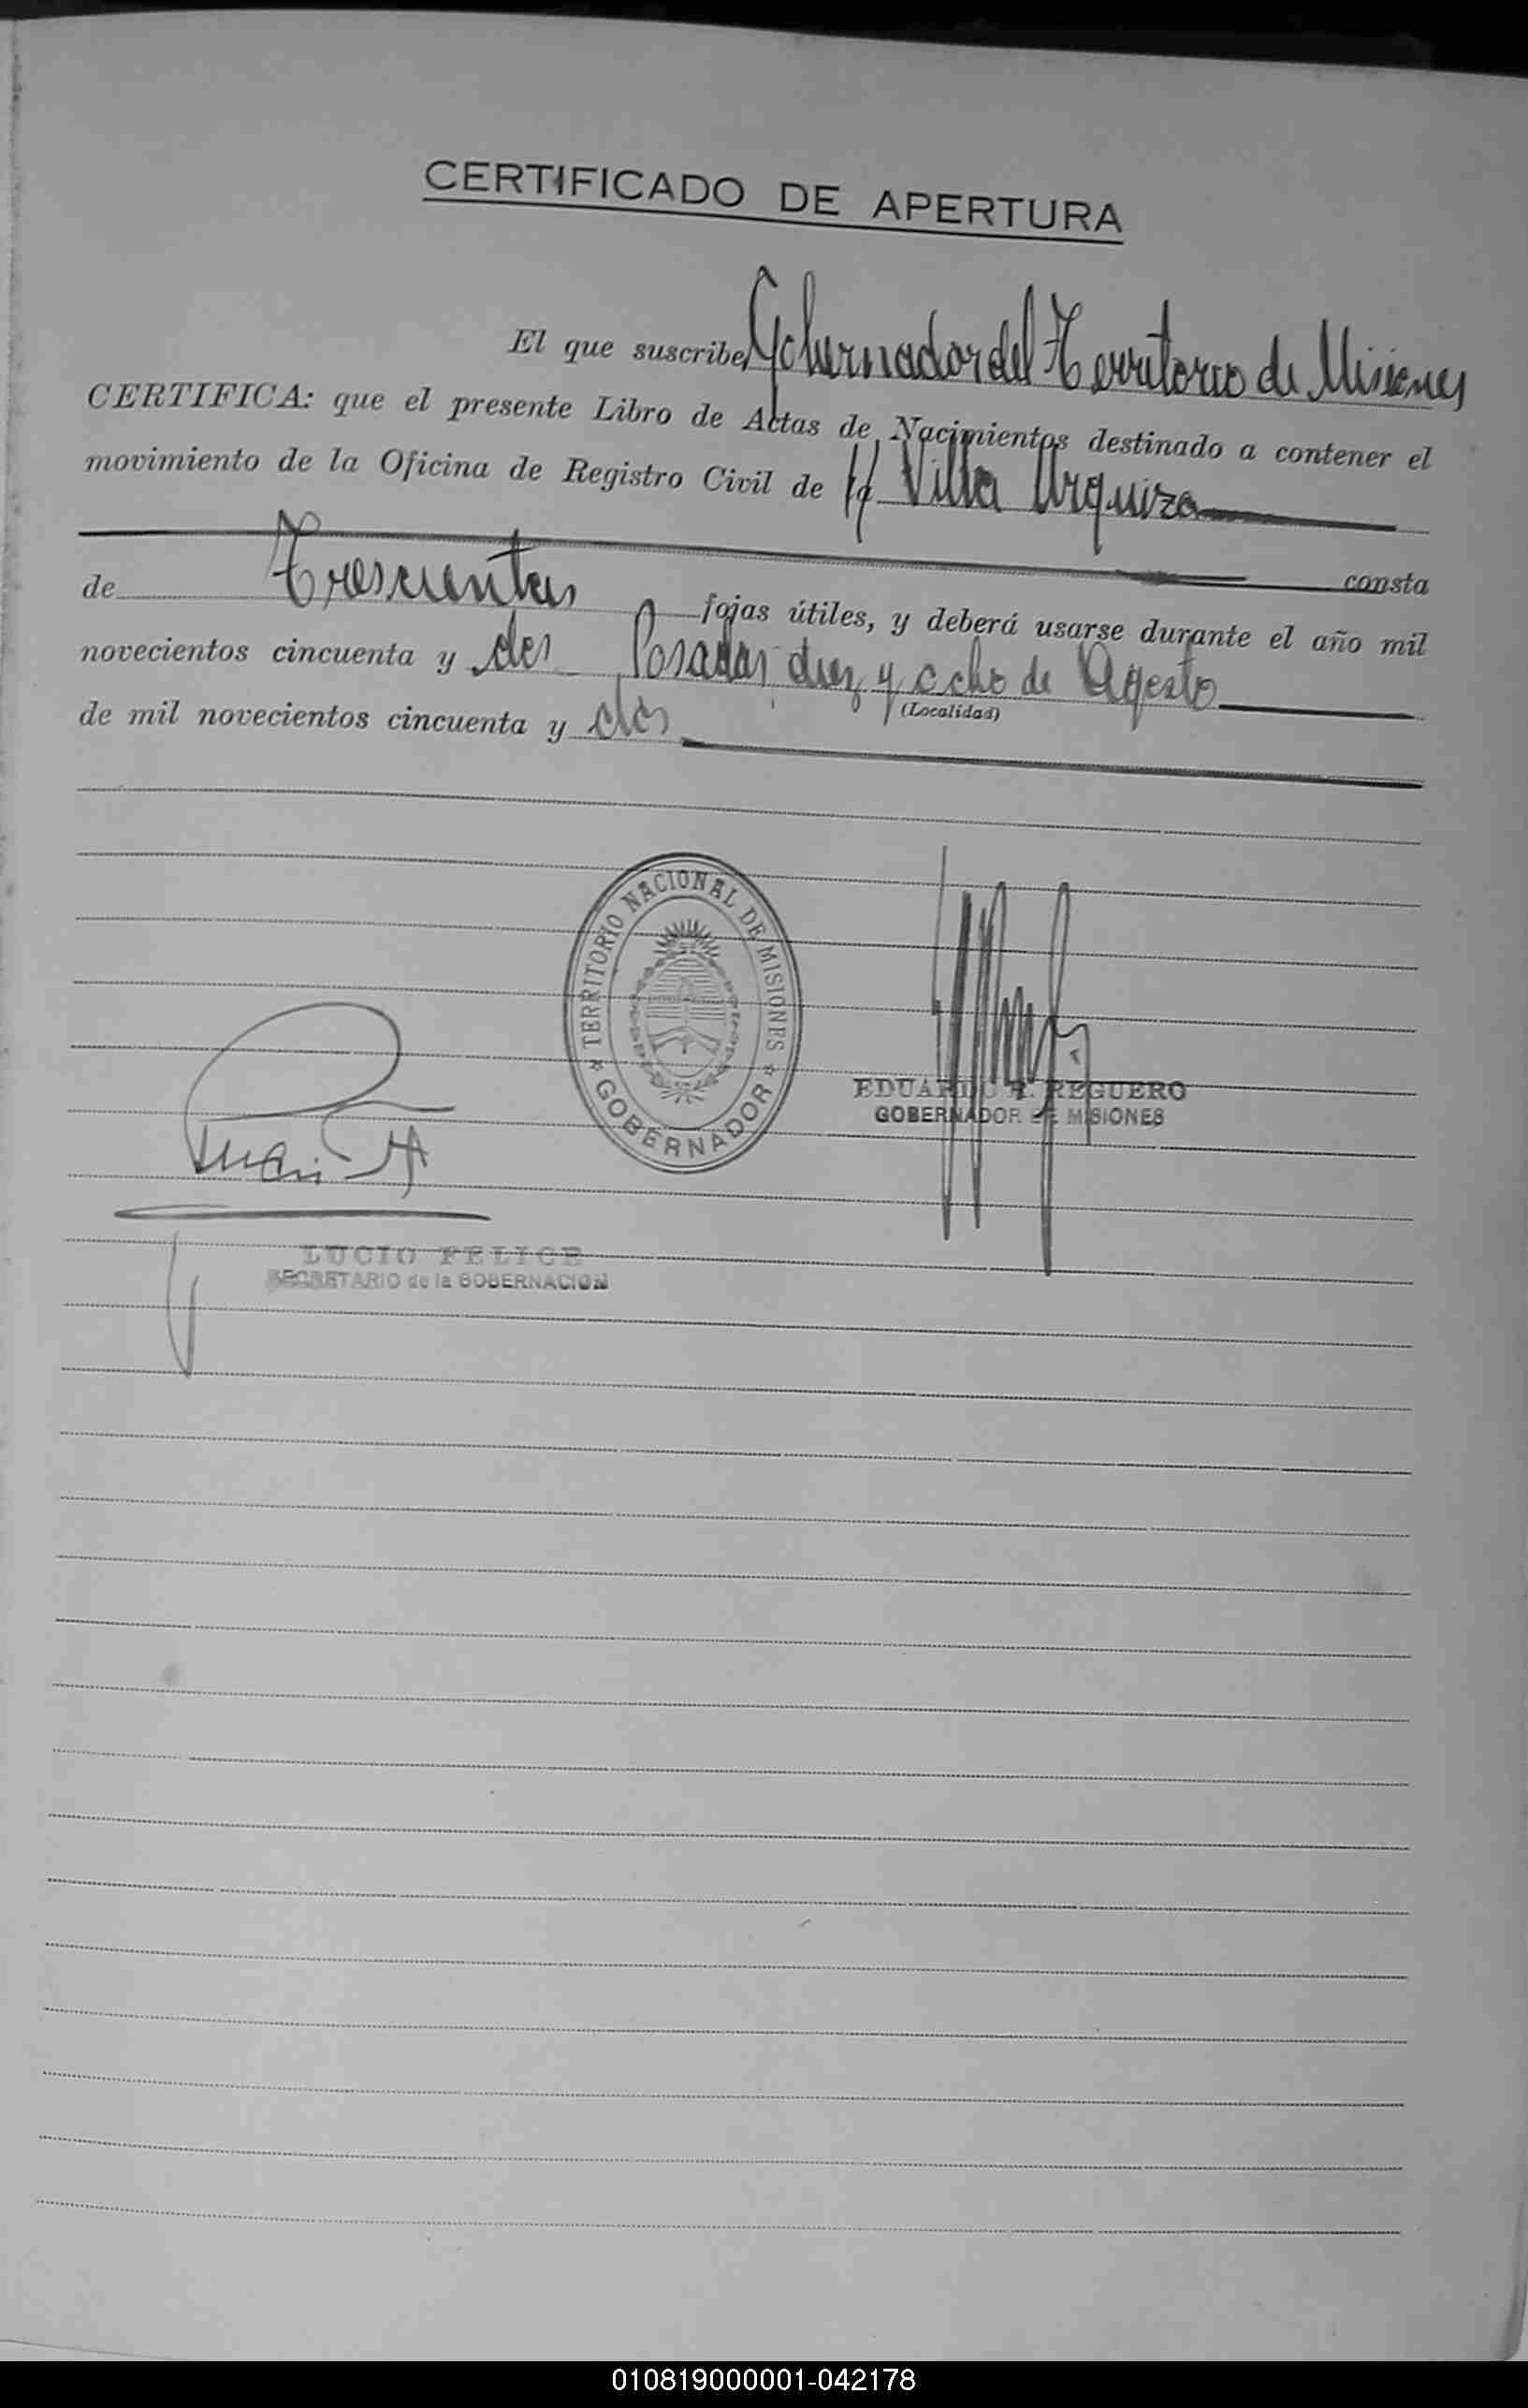 CERTIFICADO DE APERTURA
El que suscribe, Gobernador del Territorio de Misiones
CERTIFICA: que el presente Libro de Actas de Nacimientos destinado a contener el
movimiento de la Oficina de Registro Civil de la Villa Urquiza
consta
de Trescientas fojas útiles, y deberá usarse durante el año mil
novecientos cincuenta y dos Posadas, diez y ocho de Agosto
(Localidad)
de mil novecientos cincuenta y dos
TERRITORIO NACIONAL DE MISIONES
GOBERNADOR
EDUARDO R. REGUERO
GOBERNADOR DE MISIONES
LUCIO FELICE
SECRETARIO de la GOBERNACION
010819000001-042178